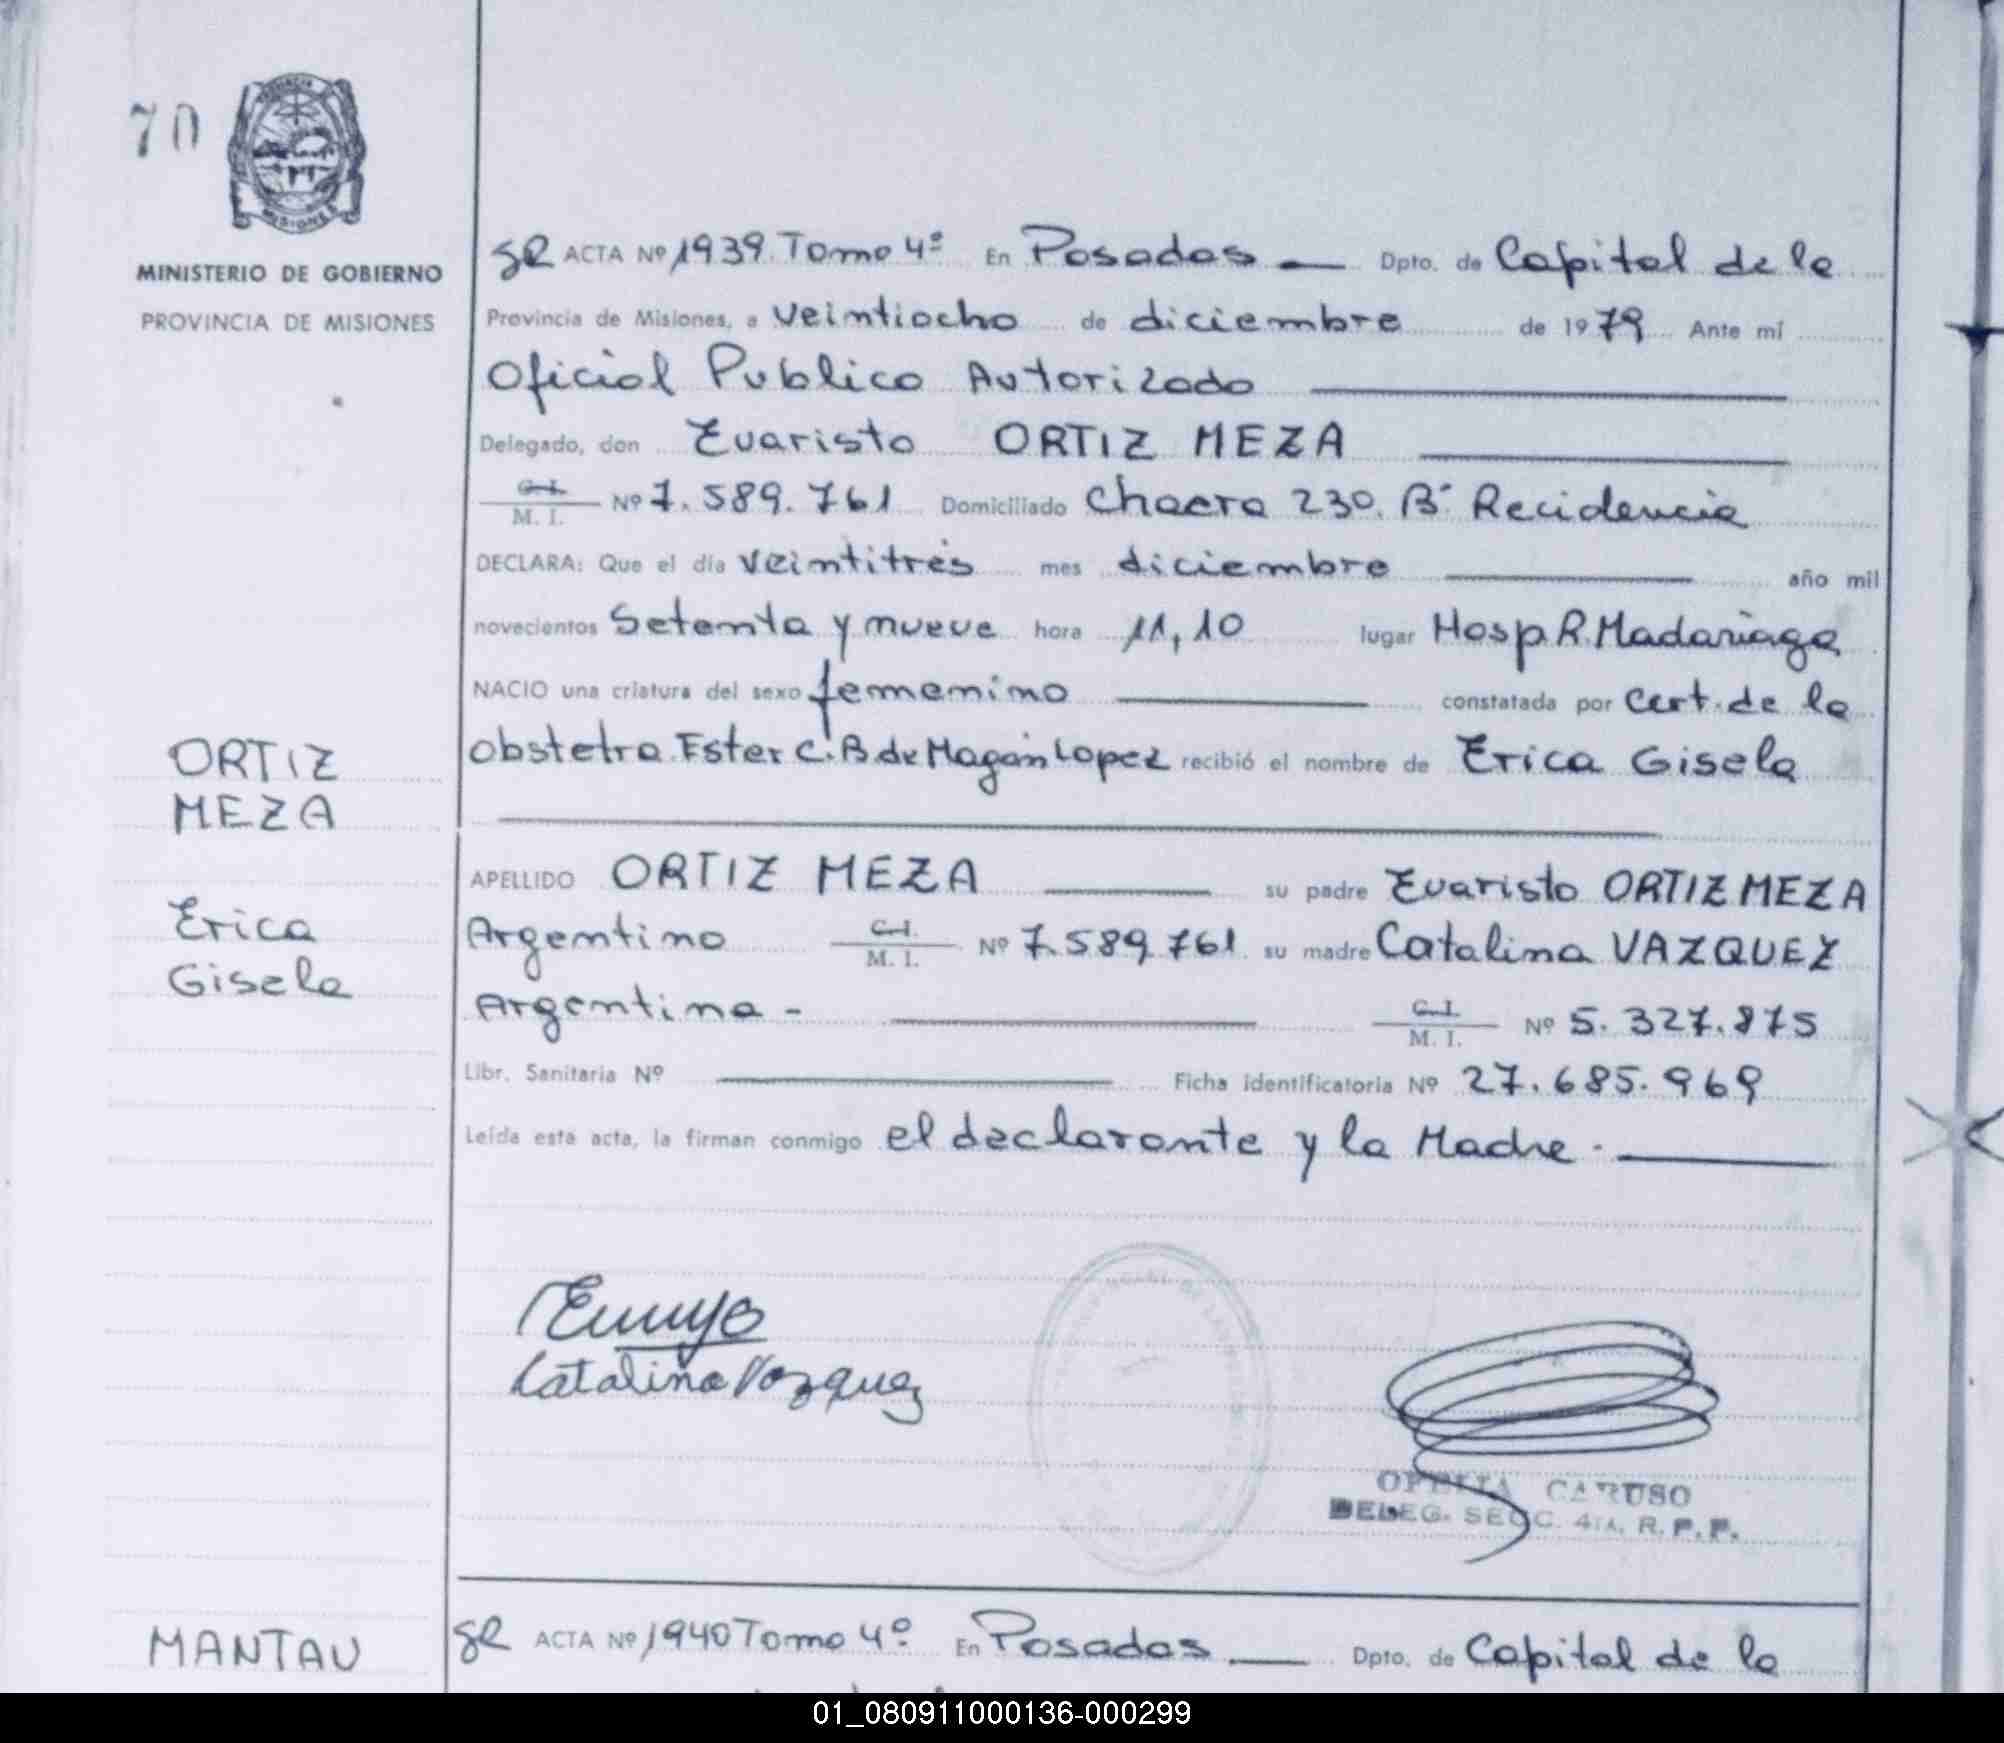 70
MISIONES
MINISTERIO DE GOBIERNO
PROVINCIA DE MISIONES
ACTA Nº 1939 Tomo 4º En Posadas Dpto. de Capital de la
Provincia de Misiones, a veintiocho de diciembre de 1979 Ante mí
Oficial Publico Autorizado
Delegado, don Evaristo ORTIZ MEZA
C.I. / M. I. Nº 7.589.761 Domiciliado Chacra 230. Bº Recidencia
DECLARA: Que el día veintitrés mes diciembre año mil
novecientos Setenta y nueve hora 11,10 lugar Hosp R. Madariaga
NACIO una criatura del sexo femenino constatada por Cert. de la
Obstetra Ester C. B de Magan Lopez recibió el nombre de Erica Gisela
ORTIZ
MEZA
Erica
Gisela
APELLIDO ORTIZ MEZA su padre Evaristo ORTIZ MEZA
Argentino C.I. / M. I. Nº 7.589.761 su madre Catalina VAZQUEZ
Argentina - C.I. / M. I. Nº 5.327.875
Libr. Sanitaria Nº Ficha identificatoria Nº 27.685.969
Leída esta acta, la firman conmigo el declarante y la Madre.
Catalina Vazquez
OFELIA CARUSO
DELEG. SECC. 4ta. R. P. P.
MANTAU
ACTA Nº 1940 Tomo 4º En Posadas Dpto. de Capital de la
01_080911000136-000299